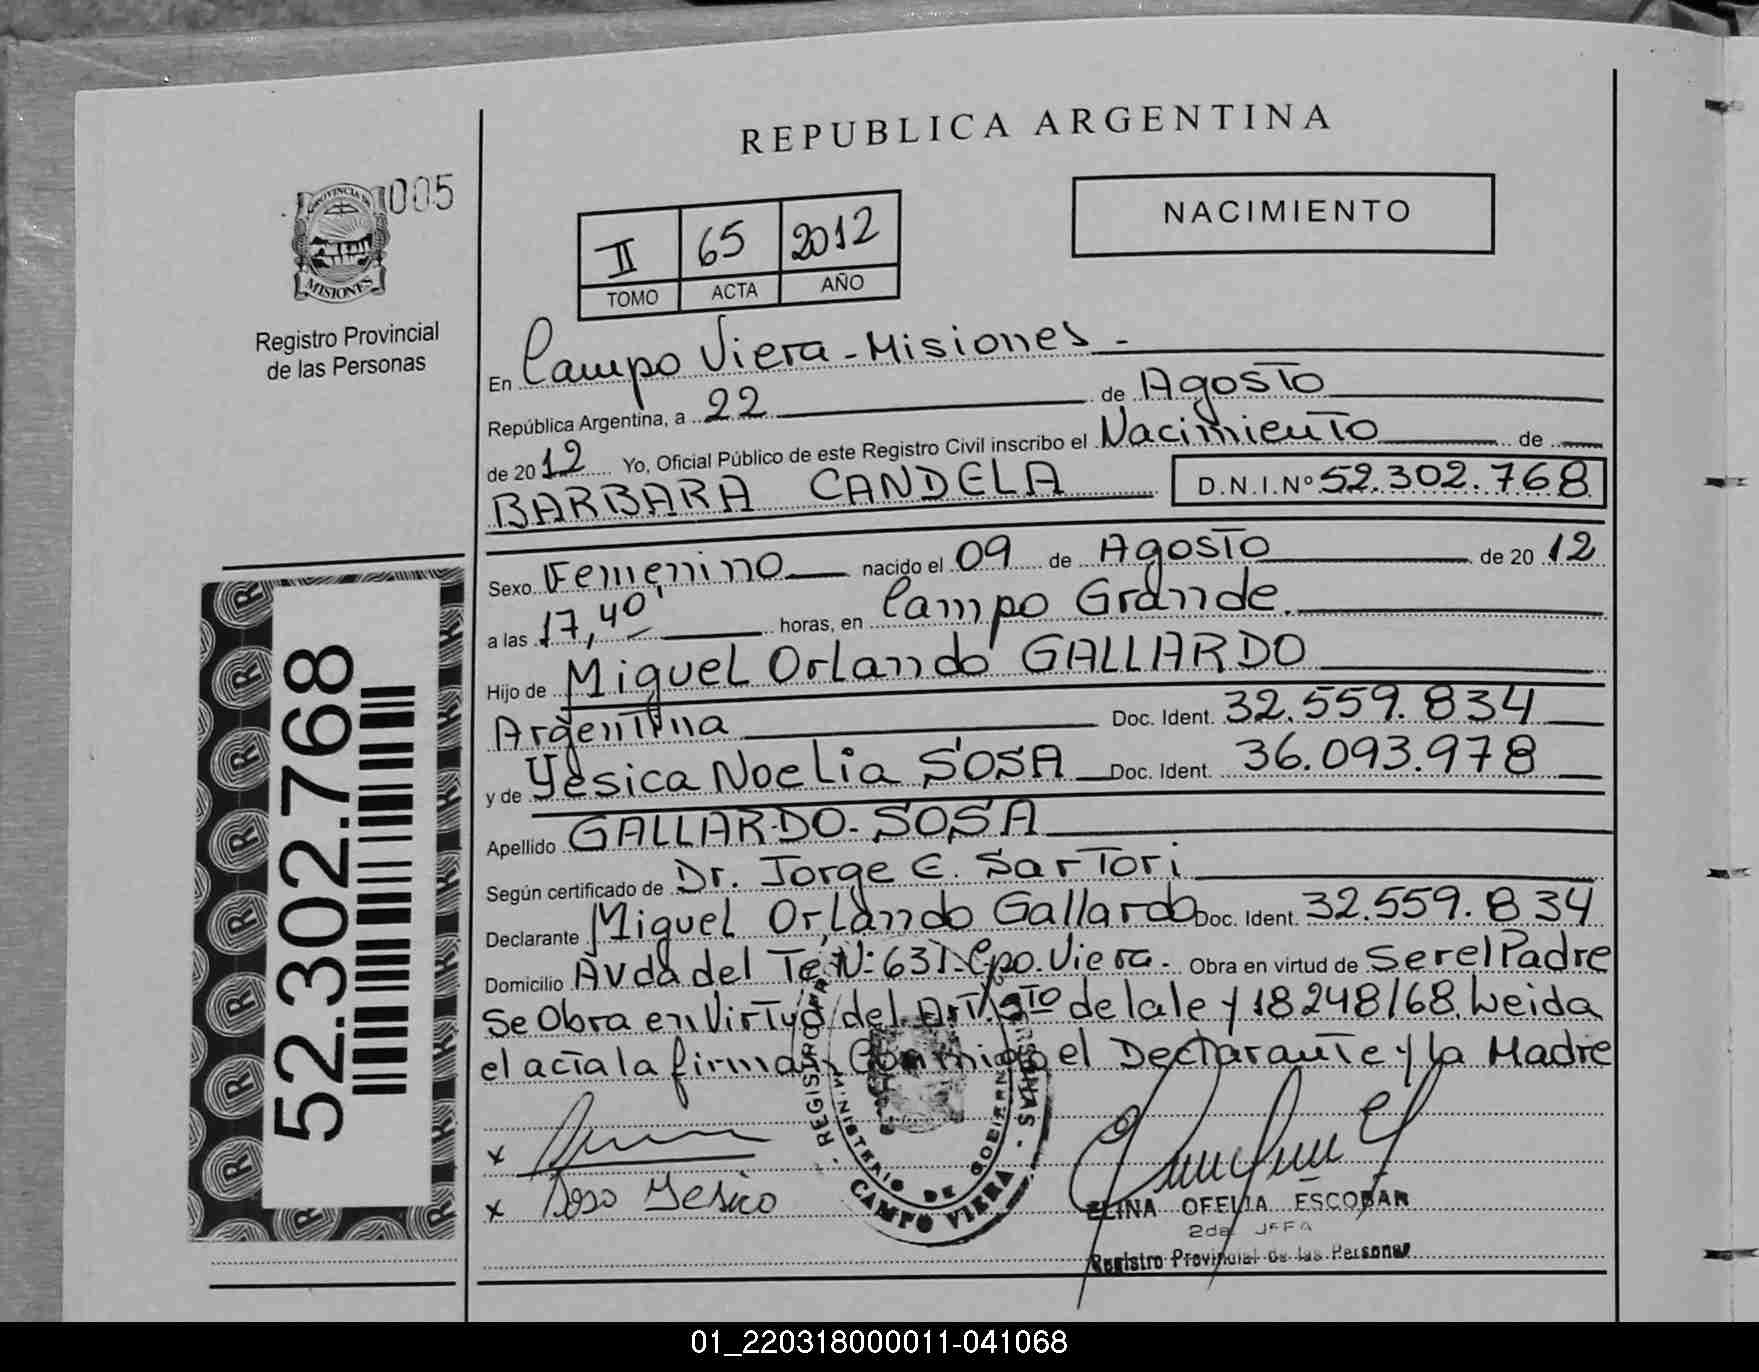 REPUBLICA ARGENTINA
005
NACIMIENTO
PROVINCIA DE
MISIONES
II 65 2012
TOMO ACTA AÑO
Registro Provincial
de las Personas
En Campo Viera - Misiones -
República Argentina, a 22 de Agosto
de 2012 Yo, Oficial Público de este Registro Civil inscribo el Nacimiento de
BARBARA CANDELA D.N.I.Nº 52.302.768
Sexo Femenino nacido el 09 de Agosto de 2012
a las 17,40' horas, en Campo Grande.
Hijo de Miguel Orlando GALLARDO
Argentina Doc. Ident. 32.559.834
y de Yesica Noelia SOSA Doc. Ident. 36.093.978
Apellido GALLARDO - SOSA
Según certificado de Dr. Jorge E. Sartori
Declarante Miguel Orlando Gallardo Doc. Ident. 32.559.834
Domicilio Avda del Te Nº 631 - Cpo. Viera - Obra en virtud de Ser el Padre
Se Obra en Virtud del Art. 5to de la ley 18248/68. Leida
el acta la firman Conmigo el Declarante y la Madre
x
x Soso Yesico
REGISTRO PROVINCIAL DE LAS PERSONAS
MINISTERIO DE GOBIERNO
CAMPO VIERA
ELINA OFELIA ESCOBAR
2da JEFA
Registro Provincial de las Personas
52.302.768
01_220318000011-041068